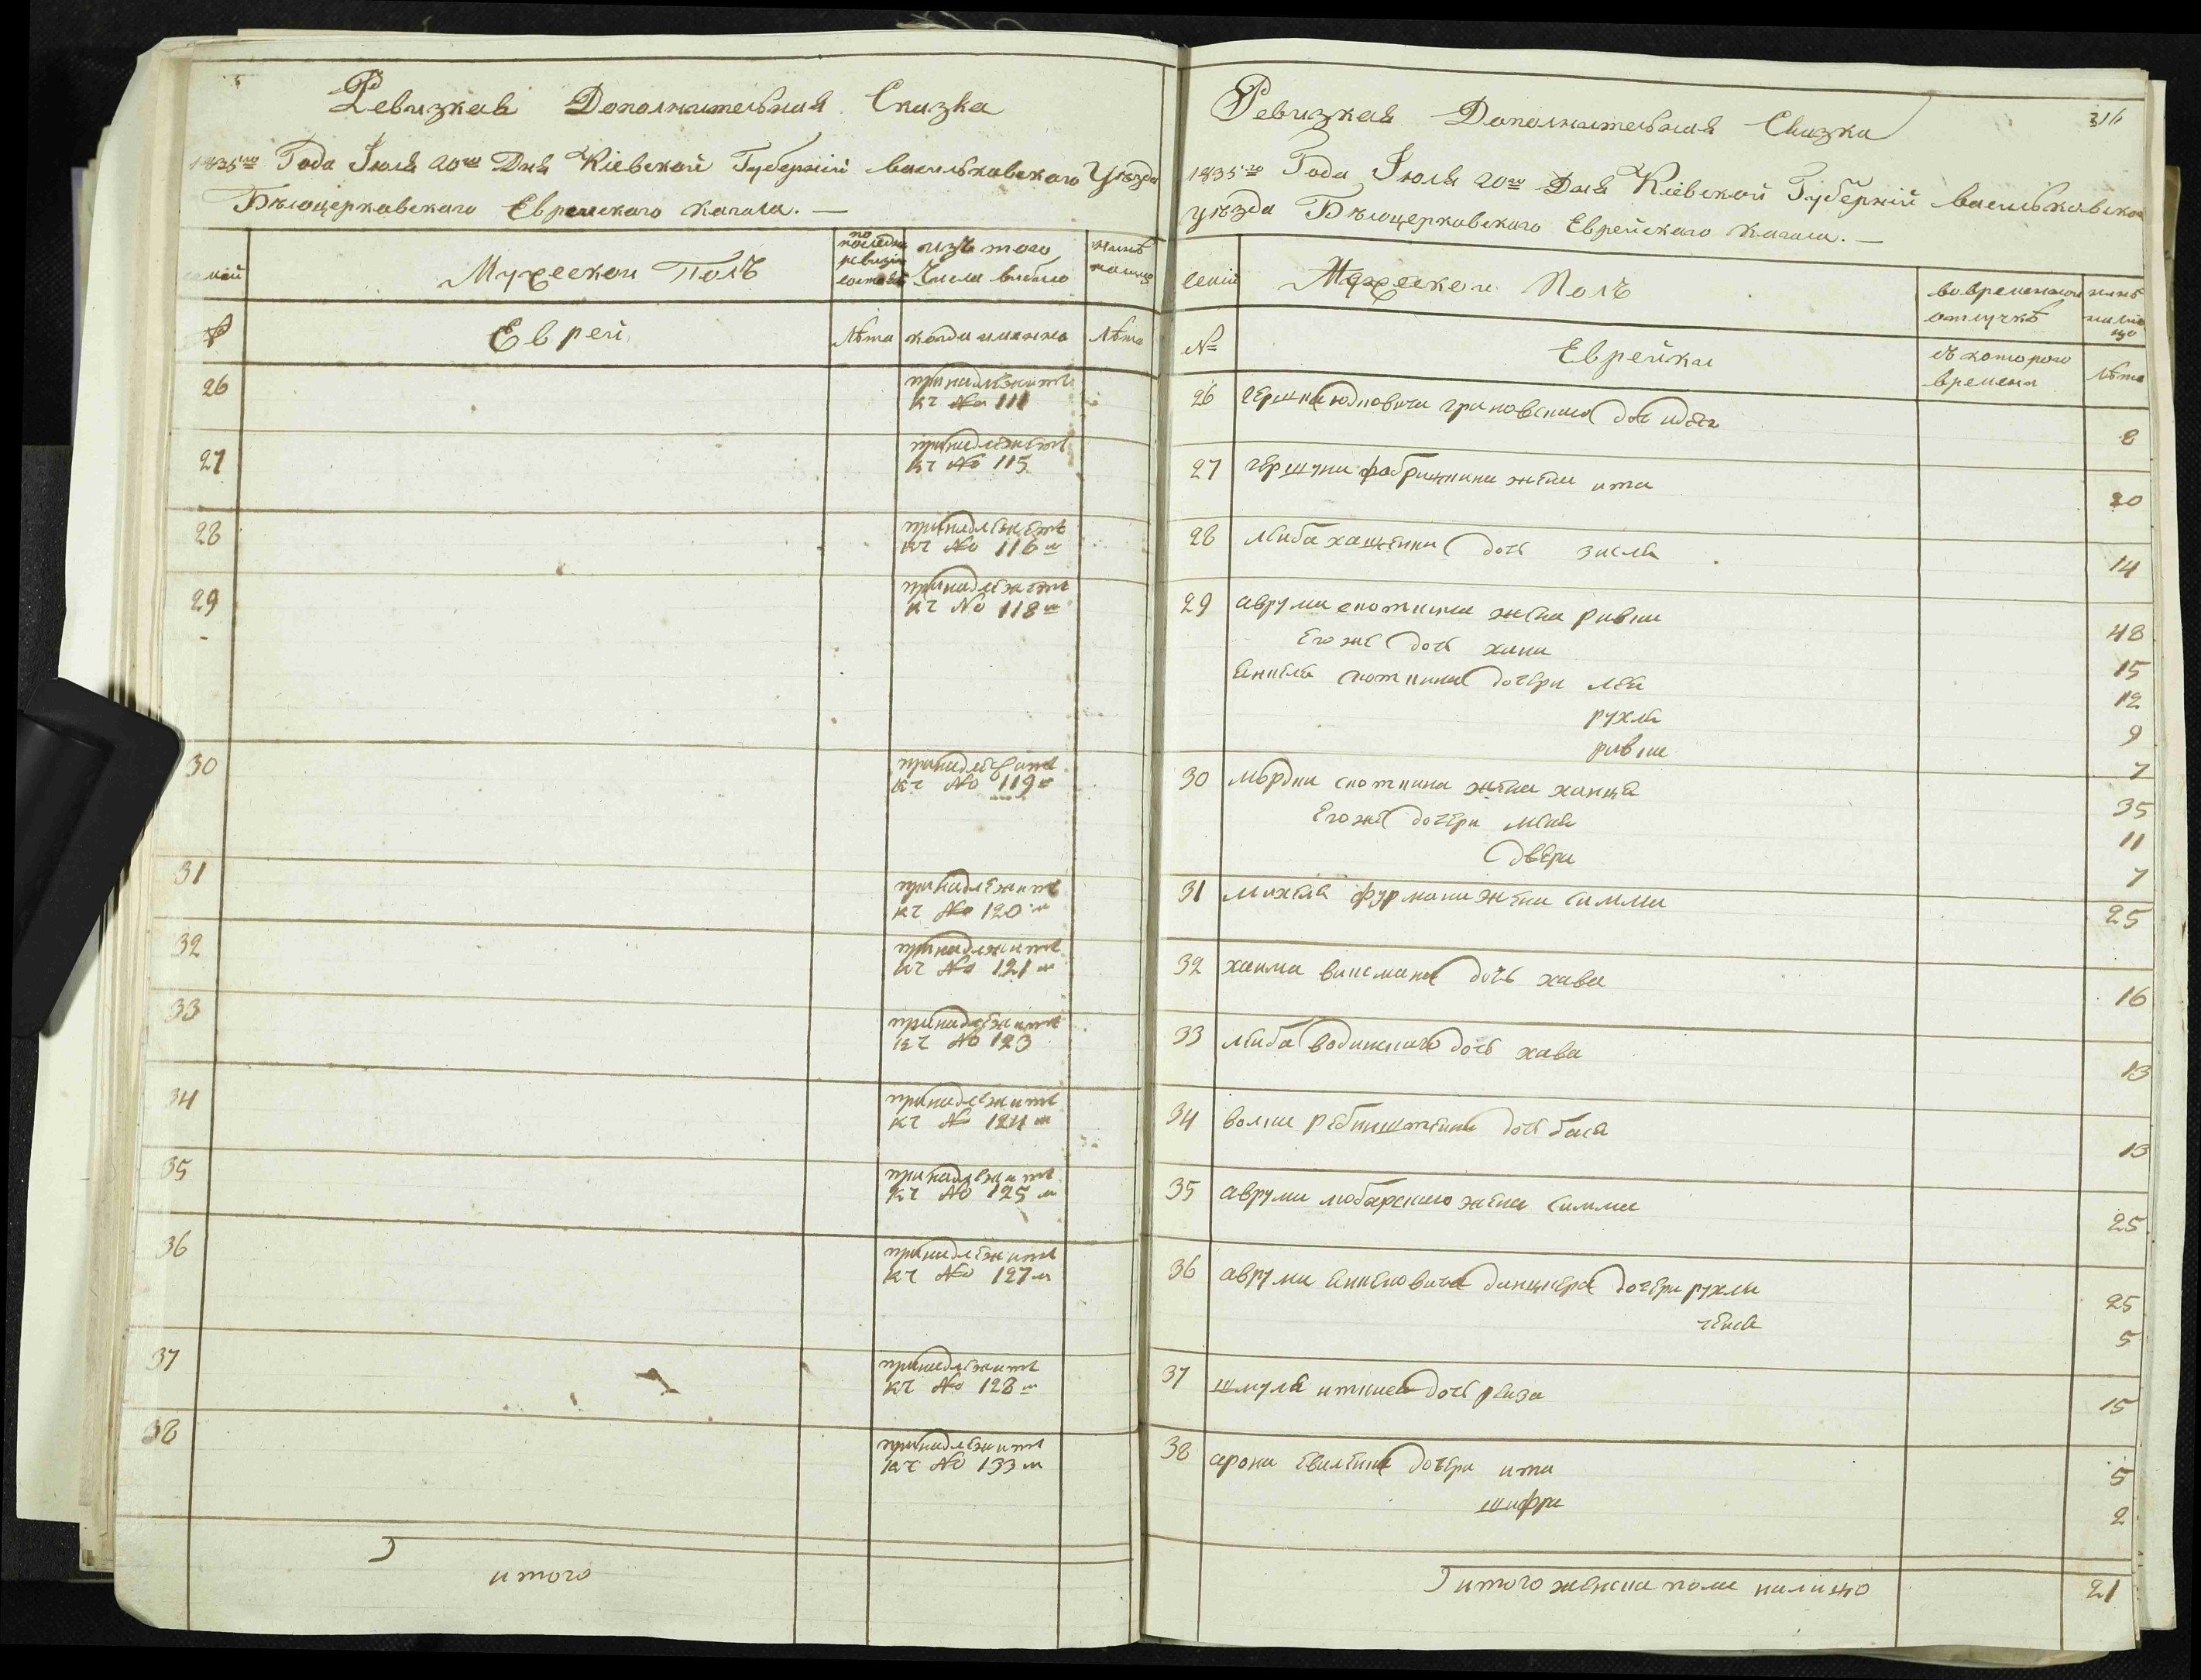 Ревизкая Дополнительная Сказка
1835го Года Іюля 20го Дня Кіевской Губерніи Васильковского Уезда
Бѣлоцерковского Еврейского Кагала. —
по последней ревизіи состояло
изъ того числа выбыло
нынѣ на лицо
Мужескои Полъ
Еврей
Лѣта
когда именно
Лѣта
26 принадлежитъ
къ No 111
27 принадлежитъ
къ No 115
28 принадлежитъ
къ No 116м
29 принадлежитъ
къ No 118м
30 принадлежитъ
къ No 119м
31 принадлежитъ
къ No 120м
32 принадлежитъ
къ No 121м
33 принадлежитъ
къ No 123
34 принадлежитъ
къ No 124м
35 принадлежитъ
къ No 125м
36 принадлежитъ
къ No 127м
37 принадлежитъ
къ No 128м
38 принадлежитъ
къ No 133м
итого
316
Ревизкая Дополнительная Сказка
1835го Года Іюля 20го Дня Кіевской Губерніи Васильковского
уѣзда Бѣлоцерковского Еврейского Кагала. —
семіи
Полъ
во временной отлучкѣ
нынѣ на лицо
№
Еврейки
съ которого времени
Лѣта
26 гершка юдковича грановского дочь 8
27 гершка фабрикана жена ита 20
28 лейба хацкина дочь зисля 14
29 аврума скотника жена ривка 48
его же дочь хана 15
янкеля скотника дочери лея 12
рухля 9
ривка 7
30 мордка скотника жена ханця 35
его же дочери 11
двера 7
31 михеля фурмана жена симма 25
32 хаима висмана дочь хава 16
33 лейба дочь хава 13
34 волка дочь бася 13
35 аврума любарского жена симма 25
36 аврума янкеловича данцигера дочери рухля 25
5
37 шмуля дочь 15
38 арона дочери ита 5
шифра 2
итого женска пола налицо 21